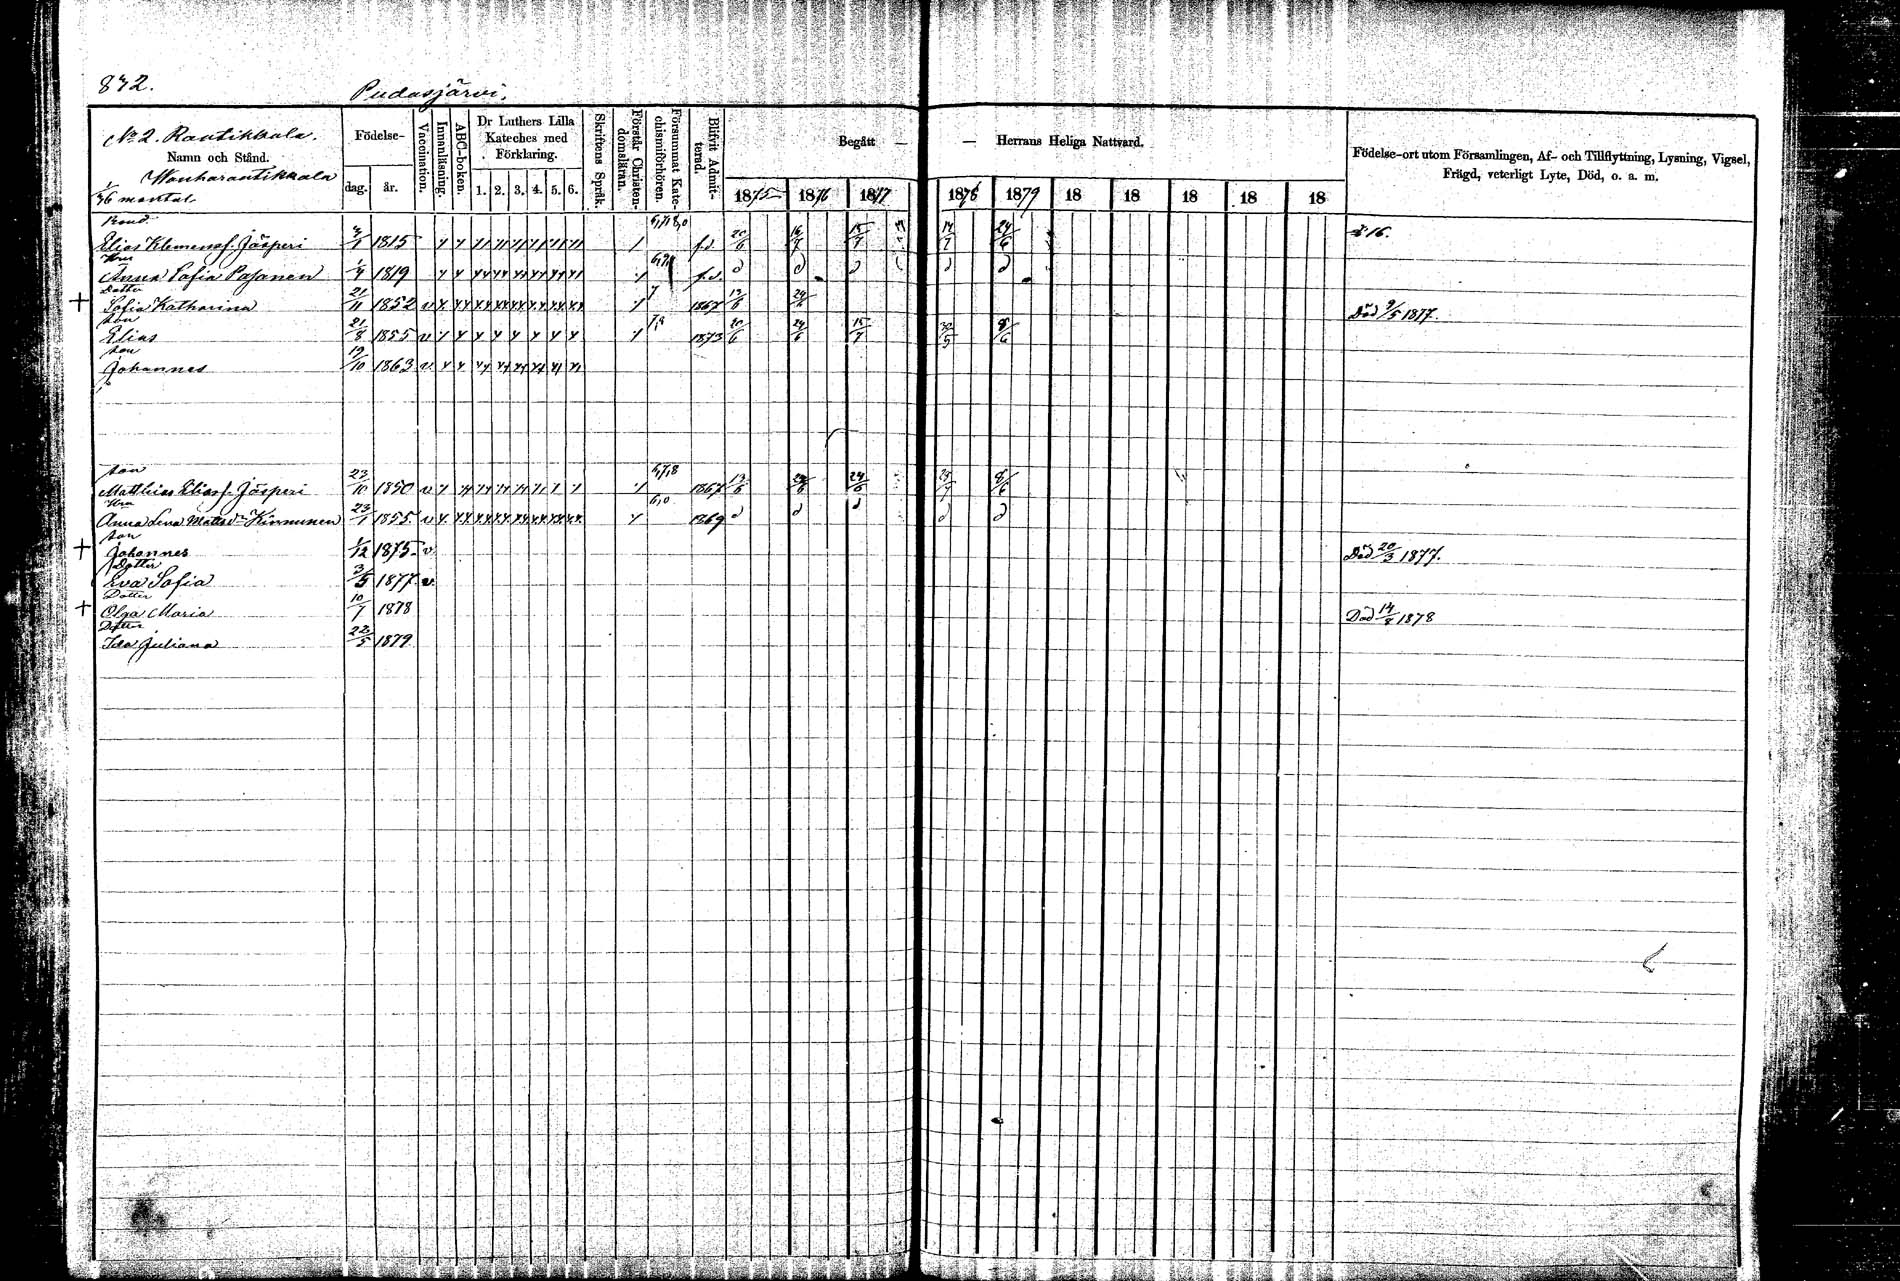 872.
Pudasjärvi.
No 2. Rantikkala.
Namn och Stånd.
Wanharantikkala
1/6 mantal
Födelse-
dag. år.
Vaccination.
Innanläsning.
ABC-boken.
Dr Luthers Lilla Kateches med Förklaring.
1. 2. 3. 4. 5. 6.
Skriftens Språk.
Förstår Christendomsläran.
Försummat Katechismiförhören.
Blifvit Admitterad.
Begått — — Herrans Heliga Nattvard.
1875 1876 1877 1878 1879 18 18 18 18 18
Födelse-ort utom Församlingen, Af- och Tillflyttning, Lysning, Vigsel,
Frägd, veterligt Lyte, Död, o. a. m.
Bond
Elias Klemensf. Jäsperi 1815 f.d. 20/6
Hru
Anna Sofia Pajanen 1819 f.d.
Dotter
+ Sofia Katharina 21/11 1852 v 1867 13/6 Död 9/5 1877.
Son
Elias 21/8 1855 v 1873 20/6 8/6
Son
Johannes 19/10 1863 v
Son
Matthias Eliasf. Jäsperi 23/10 1850 v 6,7,8 1867 13/6 24/6 24/6 8/6
Hru
Anna Lena Matsdr Kinnunen 23/1 1855 v 6,0 1869
Son
+ Johannes 1/12 1875 v Död 20/3 1877.
Dotter
Eva Sofia 3/5 1877 v
Dotter
+ Olga Maria 10/7 1878 Död 14/8 1878
Dotter
Ida Juliana 22/5 1879